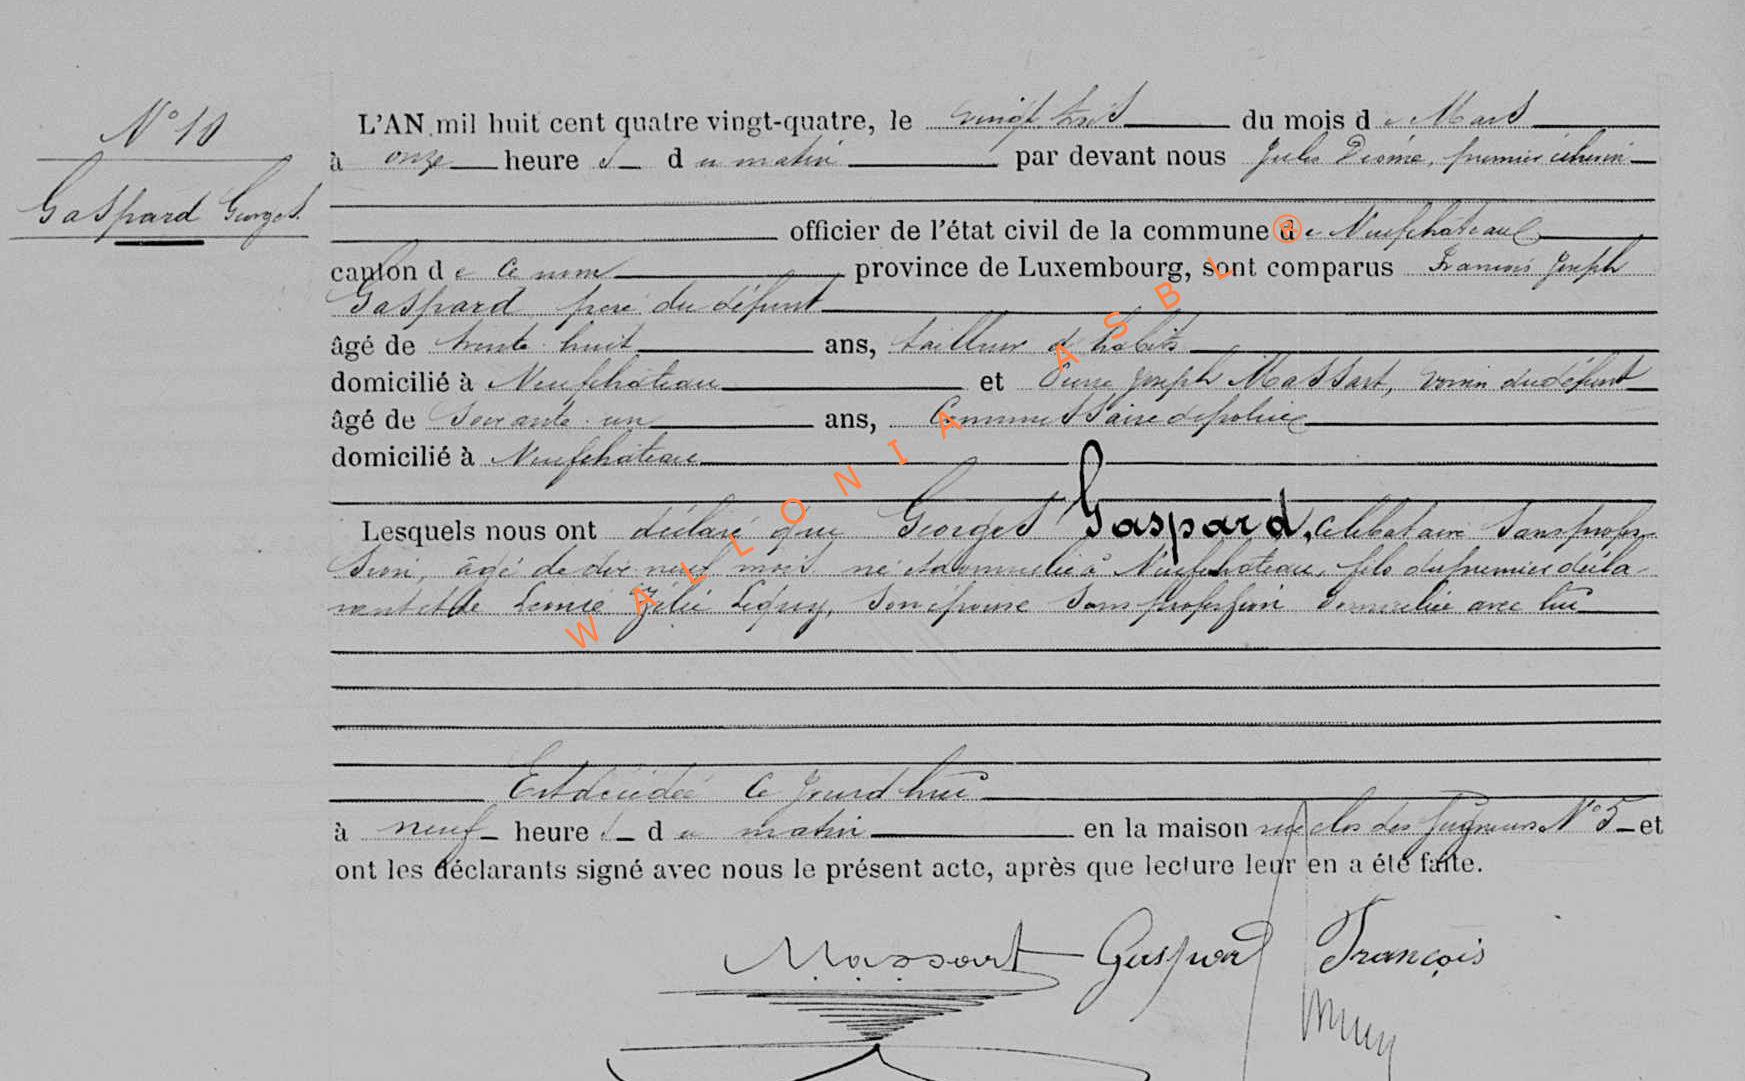 N° 10
Gaspard Georges.
L'AN mil huit cent quatre vingt-quatre, le vingt trois du mois de Mars
à onze heures du matin par devant nous Jules premier échevin
officier de l'état civil de la commune de Neufchâteau
canton de ce nom province de Luxembourg, sont comparus François Joseph
Gaspard père du défunt
âgé de trente huit ans, tailleur d'habits
domicilié à Neufchâteau et Pierre Joseph Massart, voisin du défunt
âgé de soixante un ans, Commissaire de police
domicilié à Neufchâteau
Lesquels nous ont déclaré que Georges Gaspard, célibataire sans profes-
sion, âgé de dix neuf mois né et domicilié à Neufchâteau, fils du premier décla-
rant et de Zélie son épouse sans profession domiciliée avec lui
Est décédé ce jourd'hui
à neuf heures du matin en la maison rue clos des Seigneurs N° 5 et
ont les déclarants signé avec nous le présent acte, après que lecture leur en a été faite.
Massart Gaspard François
WALLONIA ASBL ®